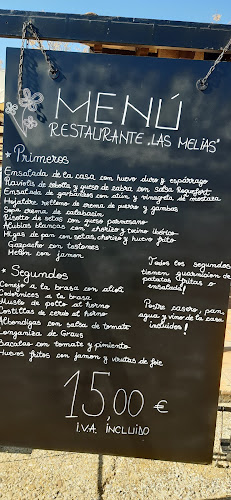 MENÚ
RESTAURANTE „LAS MELÍAS"
* Primeros
Ensalada de la casa con huevo duro y espárrago
Raviolis de cebolla y queso de cabra con salsa Roquefort
Ensalada de garbanzos con atún, y vinagreta de mostaza
Hojaldre relleno de crema de puerro y gambas
Sopa crema de calabacín
Risotto de setas con queso parmesano
Alubias blancas con chorizo y tocino ibérico
Migas de pan con setas, chorizo y huevo frito
Gazpacho con tostones
Melón con jamon
* Segundos
Conejo a la brasa con alioli
Codornices a la brasa
Muslo de pollo al horno
Costillas de cerdo al horno
Albondigas con salsa de tomate
Longaniza de Graus
Bacalao con tomate y pimiento
Huevos fritos con jamon y virutas de foie
Todos los segundos
tienen guarnición de
patatas fritas o
ensalada!
Postre casero, pan,
agua y vino de la casa
incluidos!
15,00 €
I.V.A. INCLUIDO